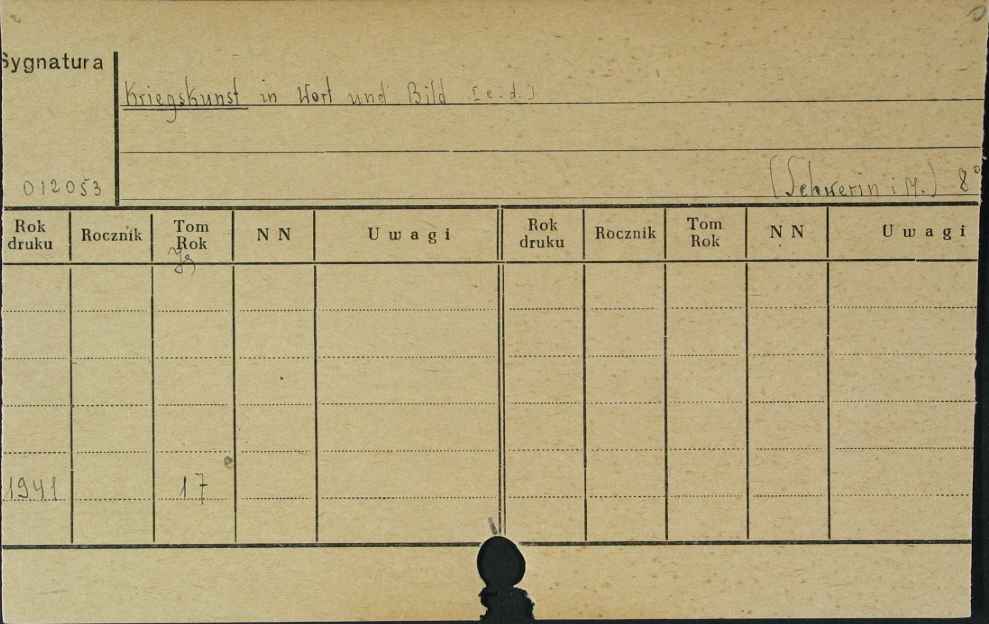 Sygnatura
Kriegskunst in Wort und Bild [e.d.]
012053
(Schwerin i M.) 8°
Rok druku Rocznik Tom Rok NN Uwagi Rok druku Rocznik Tom Rok NN Uwagi
Jg
1941 17